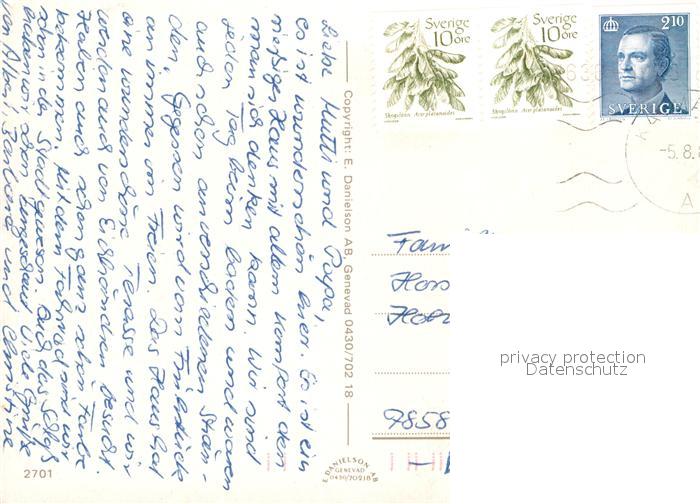 Liebe Mutti und Papa,
es ist wunderschön hier. Es ist ein
riesiges Haus mit allem Komfort den
man sich denken kann. Wir sind
jeden Tag beim baden und waren
auch schon an verschiedenen Strän-
den. Gegessen wird vom Frühstück
an immer im Freien. Das Haus hat
eine wunderschöne Terasse und wir
werden auch von Eichhörnchen besucht.
Haben auch schon ganz schön Farbe
bekommen. Mit dem Fahrrad sind wir
schon in der Stadt gewesen. Auch das Schloß
haben wir schon Viele Grüße
von Albert, Barbara und Christine
Copyright: E. Danielson AB, Genevad 0430/702 18
2701
E. DANIELSON AB
GENEVAD
0430/70218
Sverige
10 öre
Skogslönn Acer platanoides
Sverige
10 öre
Skogslönn Acer platanoides
2.10
SVERIGE
-5.8.8
A
Fam
Hors
Holz
7858
privacy protection
Datenschutz